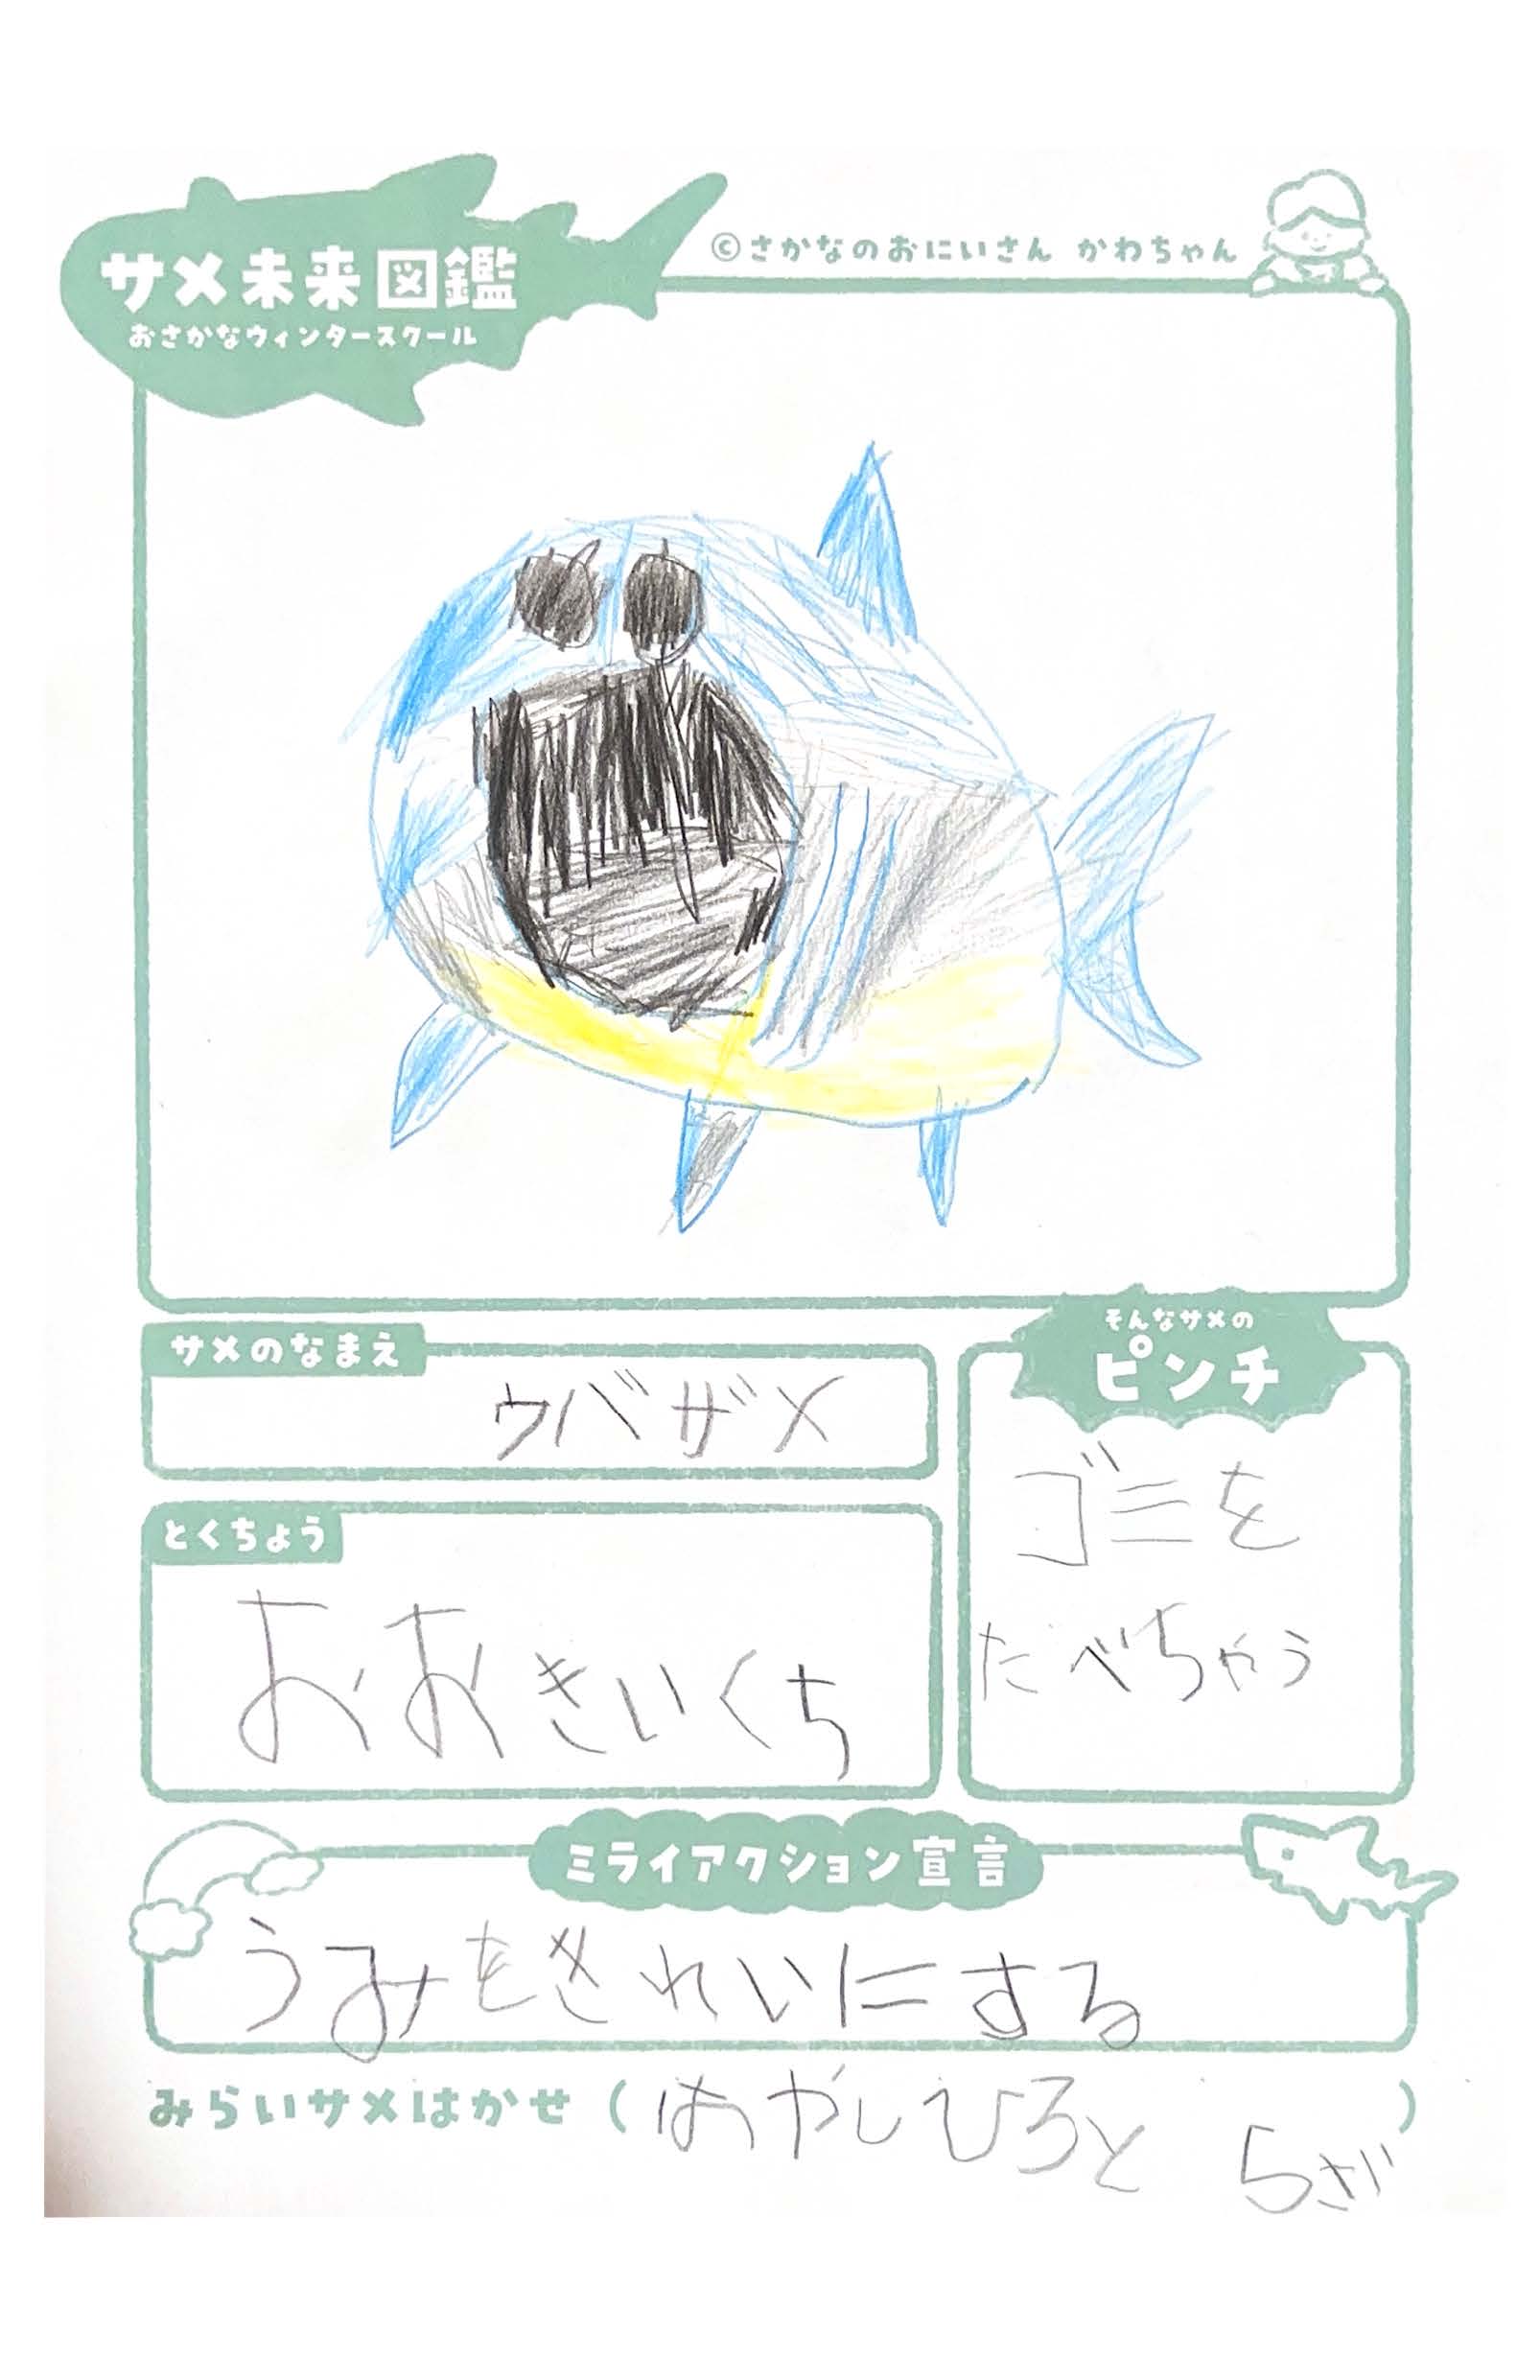 サメ未来図鑑
おさかなウィンタースクール
©さかなのおにいさん かわちゃん
サメのなまえ
ウバザメ
とくちょう
おおきいくち
そんなサメの
ピンチ
ゴミを
たべちゃう
ミライアクション宣言
うみをきれいにする
みらいサメはかせ ( はやしひろと 5さい )